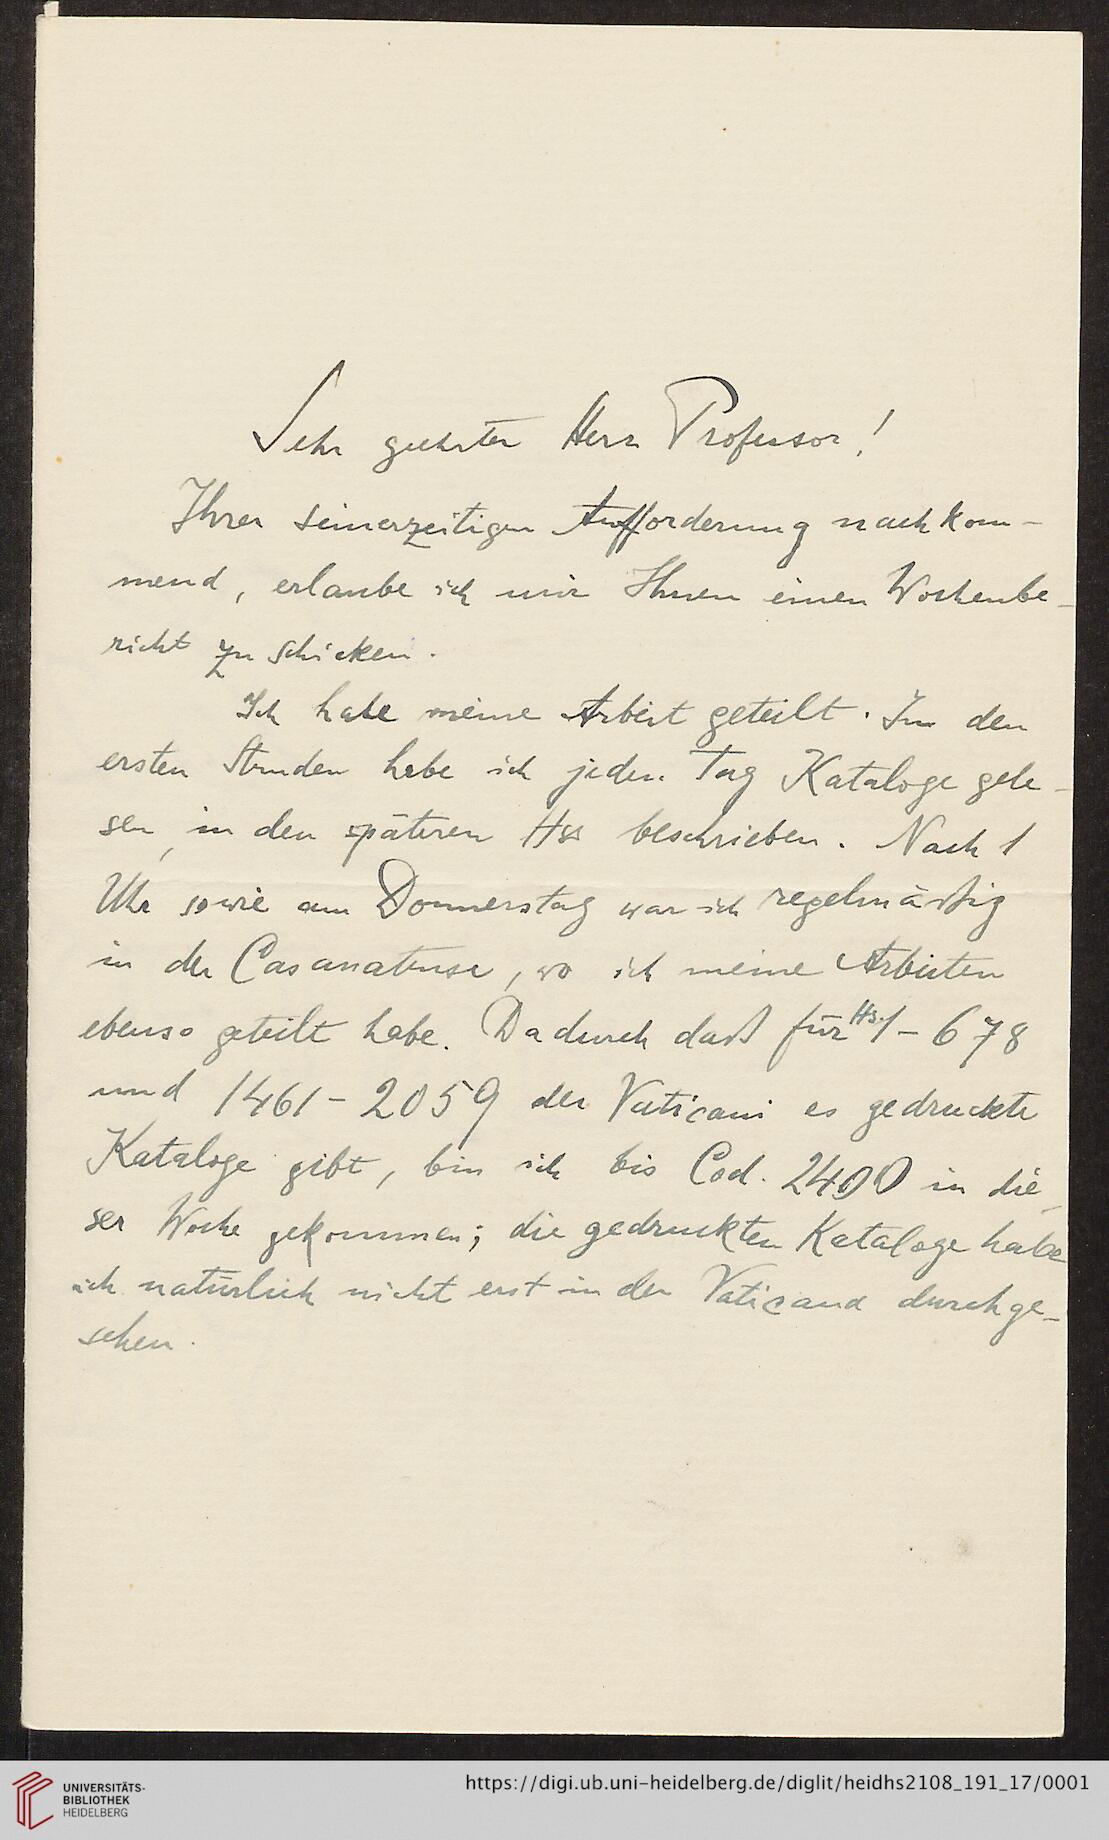 Sehr geehrter Herr Professor!
Ihrer seinerzeitigen Aufforderung nachkom-
mend, erlaube ich mir Ihnen einen Wochenbe-
richt zu schicken.
Ich habe meine Arbeit geteilt. In den
ersten Stunden habe ich jeden Tag Kataloge gele-
sen, in den späteren Hss beschrieben. Nach 1
Uhr sowie am Donnerstag war ich regelmäßig
in der Casanatense, wo ich meine Arbeiten
ebenso geteilt habe. Dadurch daß für Hs. 1-678
und 1461-2059 der Vaticani es gedruckte
Kataloge gibt, bin ich bis Cod. 2400 in die-
ser Woche gekommen; die gedruckten Kataloge habe
ich natürlich nicht erst in der Vaticana durchge-
sehen.
UNIVERSITÄTS-
BIBLIOTHEK
HEIDELBERG
https://digi.ub.uni-heidelberg.de/diglit/heidhs2108_191_17/0001